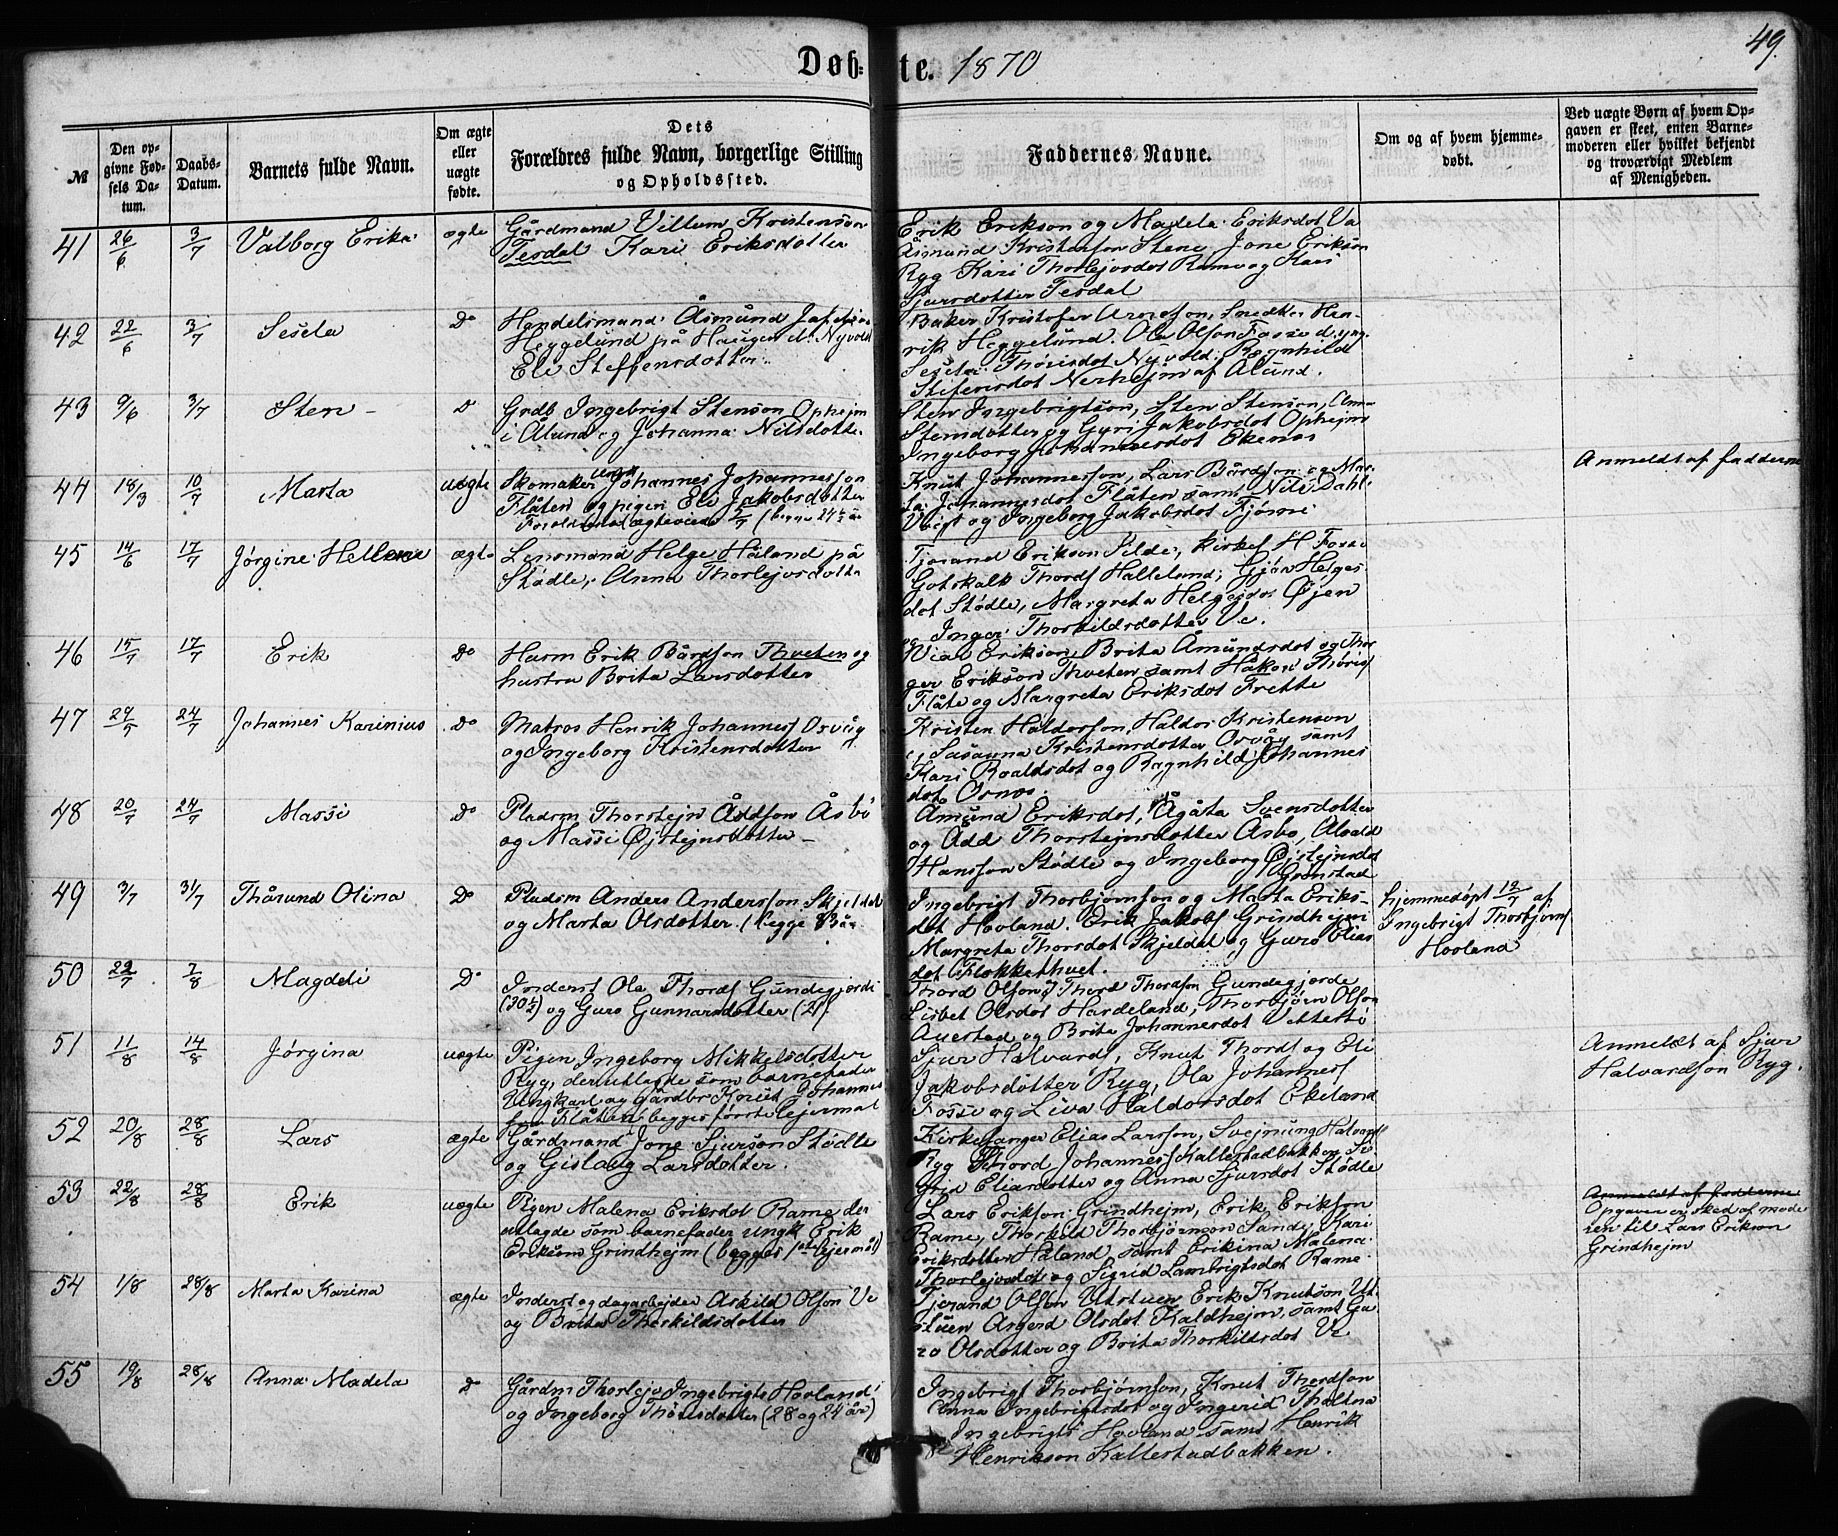 49.
Døbte. 1870
№
Den opgivne Fødsels Datum.
Daabs-Datum.
Barnets fulde Navn.
Om ægte eller uægte fødte.
Dets Forældres fulde Navn, borgerlige Stilling og Opholdssted.
Faddernes Navne.
Om og af hvem hjemmedøbt.
Ved uægte Børn af hvem Opgaven er skeet, enten Barnemoderen eller hvilket bekjendt og troværdigt Medlem af Menigheden.
41 26/6 3/7 Valborg Erika ægte
Gårdmand Villum Kristenson
Tesdal Kari Eriksdotter
Erik Erikson og Madela Eriksdot Va
Åsmund Kristenson Stene Jone Erikson
Ryg Kari Thorlejvsdot Rame og Kari
Sjursdotter Tesdal
42 22/6 3/7 Sesela Do
Handelsmand Åsmund
Heggelund på Haugen d. Nyvold
Eli Steffensdotter
Baker Kristofer Arnesson, Snedker Hen-
rik Heggelund. Ola Olson Fosse d. yng.
Sesela Thorisdot Nyvold, Ragnhild
Stefensdot Nerhejm af Ålund.
43 9/6 3/7 Sten D
Grdb Ingebrigt Stenson Ophejm
i Ålund og Johanna Nilsdotte
Sten Ingebrigtson, Sten Stenson, Anna
Stensdotter og Gyri Jakobsdot Ophejm
Ingeborg Johannesdot Ekenes
44 18/3 10/7 Marta uægte
Skomaker ungk Johannes Johannesson
Flåten og pigen Eli Jakobsdotter
Knut Johannesson, Lars Bårdson og Mar-
ta Johannesdot Flåten samt Nils Dahl
Vigt og Ingeborg Jakobsdot Fjøsne
Anmeldt af fadderne
45 14/6 17/7 Jørgine Hellene ægte
Lensmand Helge Håland på
Stødle, Anna Thorlejvsdotte
Tjerand Erikson Silde, kirkes H Fosse
Gotskalk Thords Halleland, Gjøa Helges
dot Stødle, Margreta Helgesdot Øjen
og Inger Thorkildsdotter Ve.
46 15/7 17/7 Erik Do
Husm Erik Bårdson Thveten og
hustru Brita Larsdotter
Erikson, Brita Åmundsdot og Thor-
ger Erikson Thveten samt Håkon Thoris
Flåte og Margreta Eriksdot Frette
47 24/5 24/7 Johannes Karinius Do
Matros Henrik Johanness Orvåg
og Ingeborg Kristensdotter
Kristen Haldorson, Haldor Kristenson
og Susanna Kristensdotter Orvåg samt
Kari Roaldsdot og Ragnhild Johannes
dot Ornes.
48 20/7 24/7 Massi Do
Pladsm Thorstejn Åddson Åsbø
og Massi Øjstejnsdotter
Åmund Eriksdot, Ågåta Svensdotter
og Ådd Thorstejnsdotter Åsbø,
Hansson Stødle og Ingeborg Øjstejnsdot
Grønstad
49 3/7 31/7 Thårund Olina Do
Pladsm Anders Andersson Skjeldal
og Marta Olsdotter. (begge 33 år
Ingebrigt Thorbjørnson og Marta Eriks-
dot Hovland. Erik Jakobs Grindhejm
Margreta Thorsdot Skjeldal og Guro Elias
dot Flokkethvet.
hjemmedøpt 12/7 af
Ingebrigt Thorbjørns
Hovland
50 22/7 7/8 Magdeli Do
Inderst Ola Thords Gundegjerde
(30½) og Guro Gunnarsdotter (21).
Thord Olson, Thord Thordson Gundegjerde
Lisbet Olsdot Hardeland, Thorbjørn Olson
Austad og Brita Johannesdot Vettestø
51 11/8 14/8 Jørgina uægte
Pigen Ingeborg Mikkelsdotter
Ryg, der utlagde som barnefader
Ungkarl og Gårdbr Knut Johannes
son Flåten, begges første lejermål
Sjur Halvards, Knut Thords og Eli
Jakobsdotter Ryg, Ola Johanness
Fosse og Liva Haldorsdot Ekeland
Anmeldt af Sjur
Halvardson Ryg.
52 20/8 28/8 Lars ægte
Gårdmand Jone Sjurson Stødle
og Gislaug Larsdotter.
Kirkesanger Elias Larsson, Svejnung Halvards
Ryg Thord Johanness Kallestadbakken Si-
grid Eliasdotter og Anna Sjursdot Stødle
53 22/8 28/8 Erik uægte
Pigen Malena Eriksdot Rame der
utlagde som barnefader ungk Erik
Erikson Grindhejm (begges 1ste lejermål)
Lars Erikson Grindhejm, Erik Erikson
Rame, Thorkild Thorbjørnson Sande, Kari
Eriksdotter Håland, samt Erikina Malena
Thorlejvsdot og Sigrid Lambrigtsdot Rame
Anmeldt af fadderne
Opgaven er sked af mode
ren til Lars Erikson
Grindhejm
54 1/8 28/8 Marta Karina ægte
Inderst og dagarbejder Askild Olson Ve
og Brita Thorkildsdotter
Tjerand Olson Utstuen Erik Knutson Ut-
stuen Asgerd Olsdot Kaldhejm, samt Gu-
ro Olsdotter og Brita Thorkildsdot Ve
55 19/8 28/8 Anna Madela D
Gårdm Thorlejv Ingebrigts Hovland
og Ingeborg Thorisdotter (28 og 24 år)
Ingebrigt Thorbjørnson, Knut Thordson
Anna Ingebrigtsdot og Ingerid Thalina
Ingebrigts Hovland samt Henrik
Henrikson Kallestadbakken.